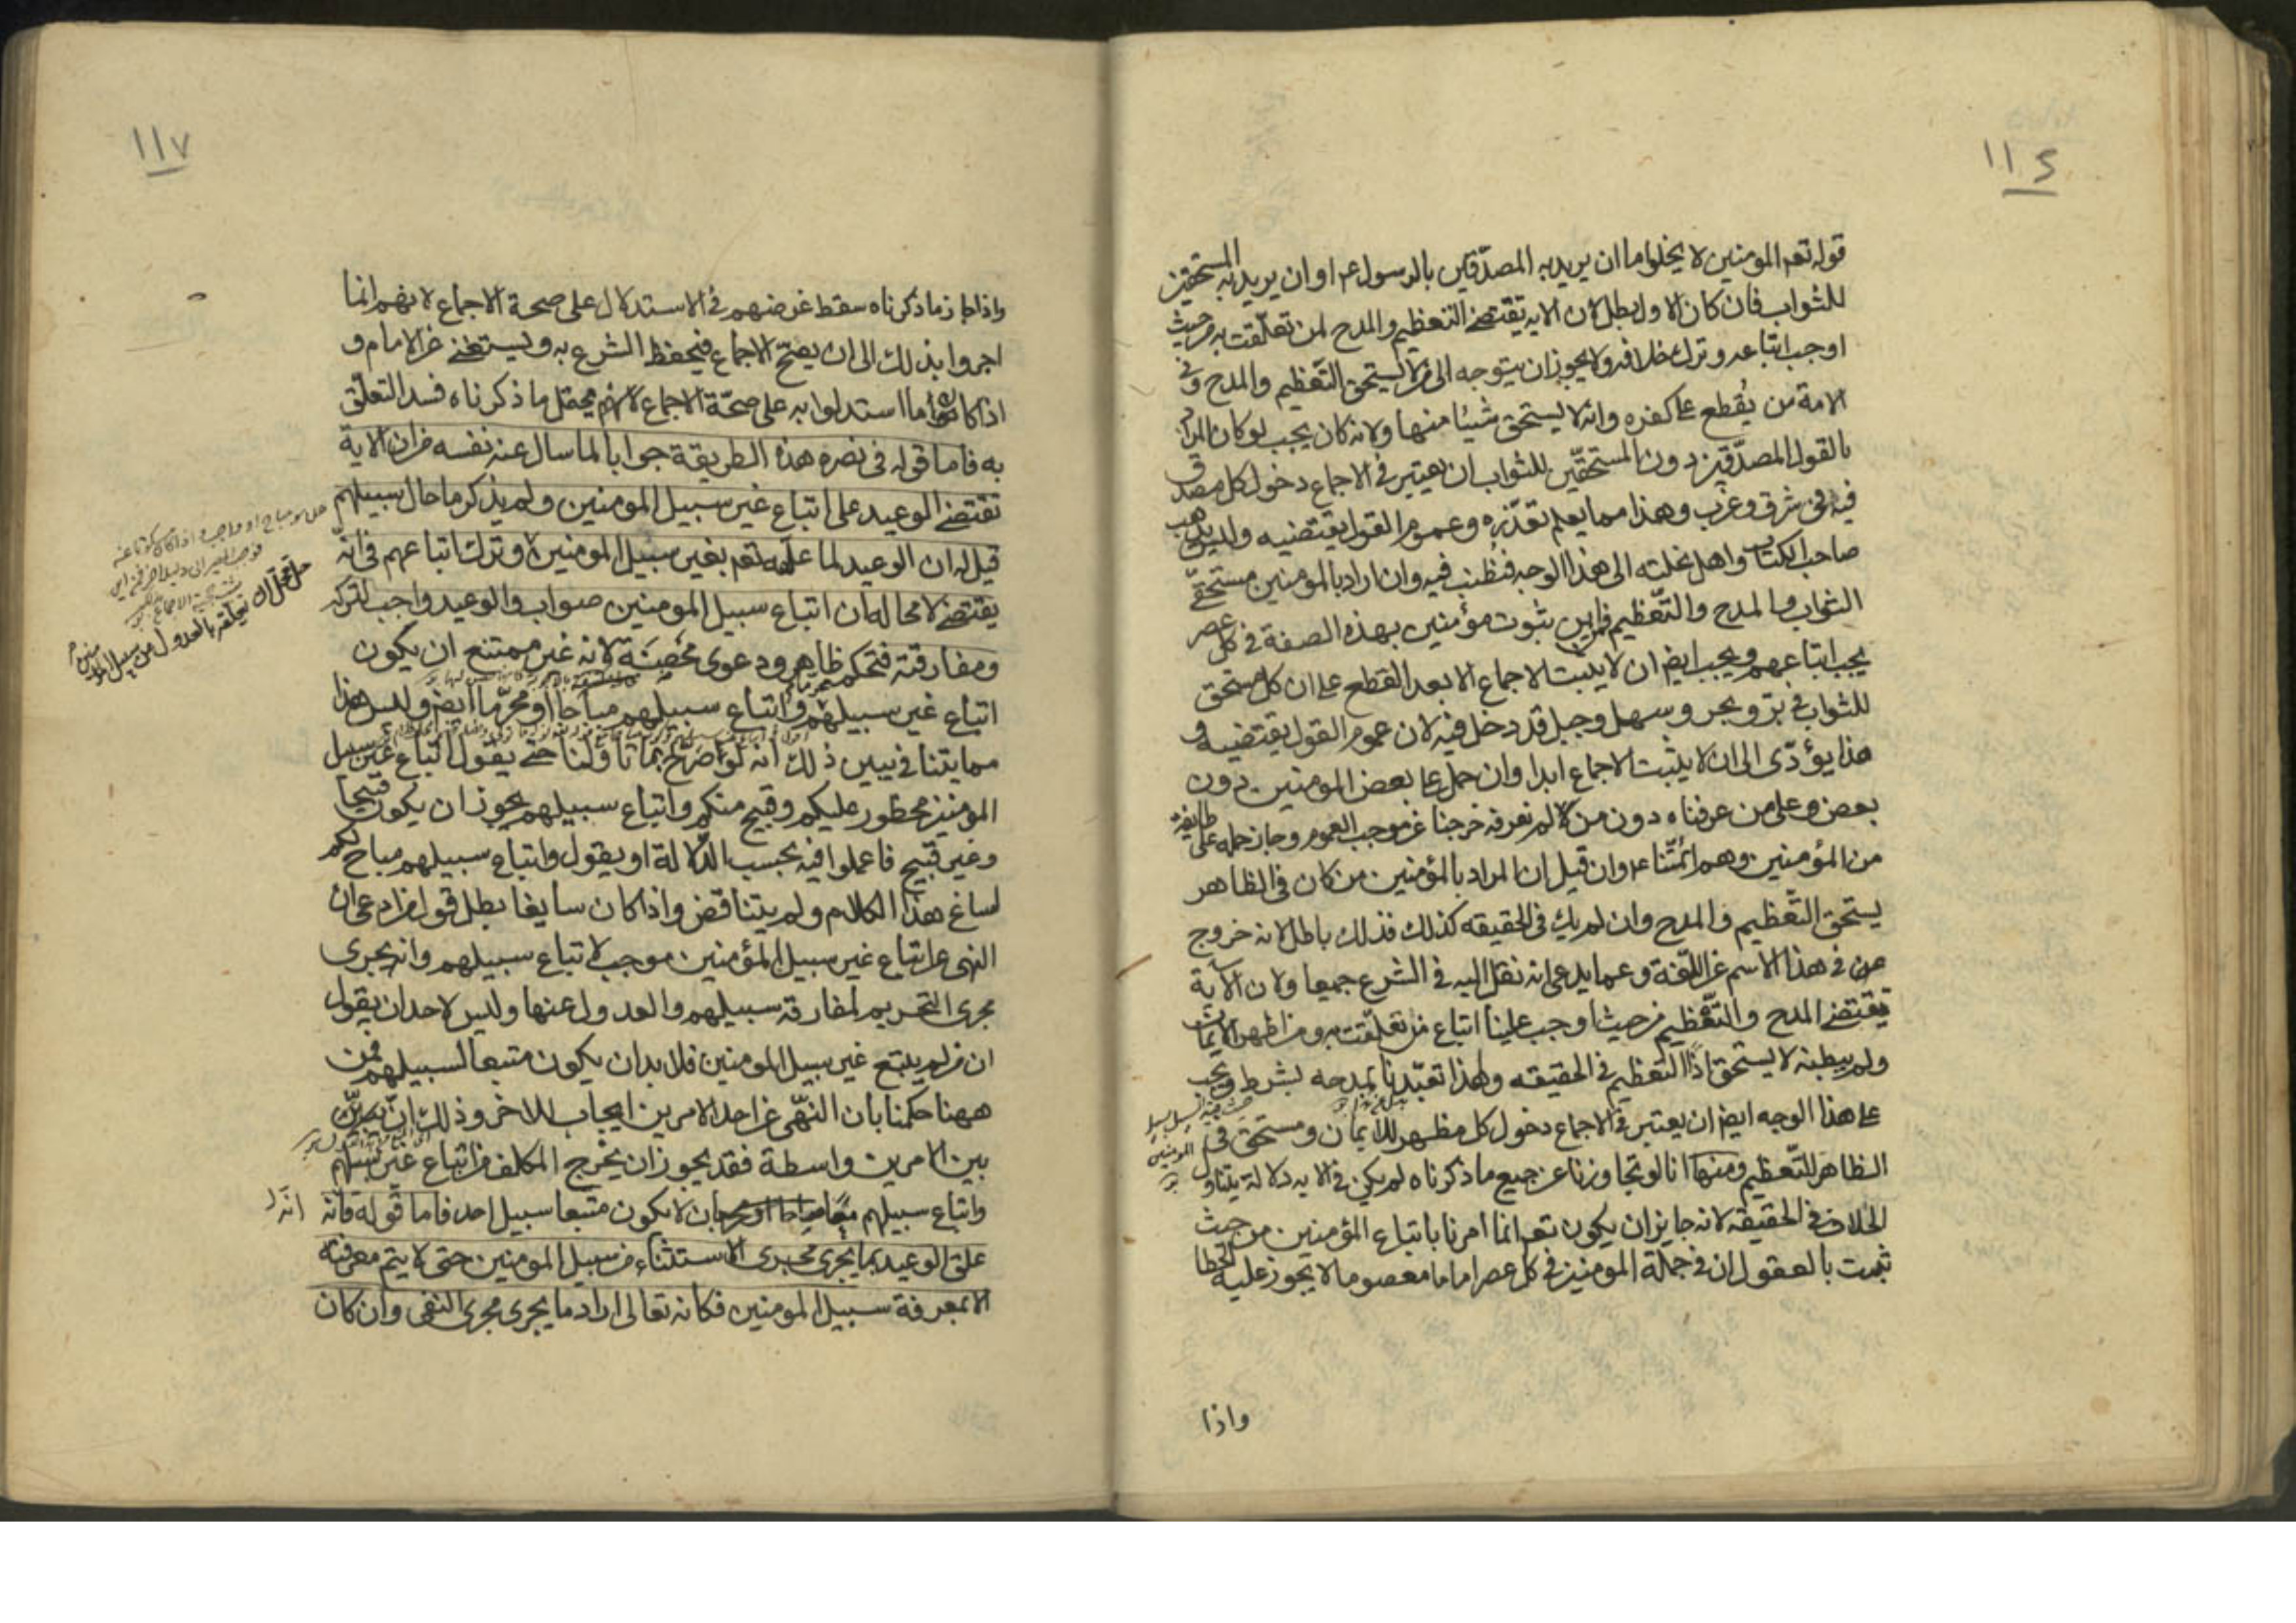 ١١٤
قوله تعه المومنين لا يخلوا ما ان يريد به المصدّقين بالرسول عم او ان يريد به المستحقين
للثواب فان كان الاول بطل لان الايه تقتضى التعظيم والمدح لمن تعلّقت به من حيث
اوجب اتباعه وترك خلافه ولا يجوز ان يتوجه الى من لا يستحق التّعظيم والمدح وفى
الامة من يُقطع على كفره وانه لا يستحق شيئا منها ولانه كان يجب لو كان المراد
بالقول المصدّقين دون المستحقّين للثواب ان يعتبر فى الاجماع دخول كل مصدق
فيه فى شرق وغرب وهذا مما يعلم تعذّره وعموم القول يقتضيه وليس يذهب
صاحب الكتاب واهل نحلته الى هذا الوجه فنطنب فيه وان اراد بالمومنين مستحقّى
الثواب والمدح والتّعظيم فمن اين ثبوت مؤمنين بهذه الصفة فى كل عصر
يجب اتباعهم ويجب ايضا ان لا يثبت الاجماع الا بعد القطع على ان كل مستحق
للثواب فى بَرّ وبحر وسهل وجبل قد دخل فيه لان عموم القول يقتضيه و
هذا يؤدّى الى ان لا يثبت الاجماع ابدا وان حمل على بعض المومنين دون
بعض وعلى من عرفناه دون من لا لم نعرفه خرجنا عن موجب العموم وجاز حمله على طايفة
من المؤمنين وهم ائمّتنا عم وان قيل ان المراد بالمؤمنين من كان فى الظاهر
يستحق التّعظيم والمدح وان لم يك فى الحقيقه كذلك فذلك باطل لانه خروج
عن فى هذا الاسم عن اللّغة وعما يدعى انه نقل اليه فى الشرع جميعا ولان الآية
تقتضى المدح والتّعظيم من حيث اوجب علينا اتباع من تعلّقت به ومن اظهر الايمان
ولم يبطنه لا يستحق اذًا التّعظيم فى الحقيقه ولهذا تعبّدنا بمدحه بشرط ويجب
على هذا الوجه ايضا ان يعتبر فى الاجماع دخول كل مظهر للايمان ومستحق فى
الظاهر للتّعظيم ومنها انا لو تجاوزنا عن جميع ما ذكرناه لم يكن فى الايه دلالة يتناول
الخلاف فى الحقيقة لانه جايز ان يكون تعه انما امرنا باتباع المؤمنين من حيث
ثبت بالعقول ان فى جملة المومنين فى كل عصر اماما معصوما لا يجوز عليه الخطا
المومنين
واذا
١١٧
واذا جاز ما ذكرناه سقط غرضهم فى الاستدلال على صحة الاجماع لانهم انما
اجروا بذلك الى ان يصحّ الاجماع فيحفظ الشرع به ويستغنى عن الامام و
اذا كان ما استدلوا به على صحّة الاجماع يحتمل ما ذكرناه فسد التعلّق
به فاما قوله فى نصرة هذه الطريقة جوابا لما سال عنه نفسه من ان الاية
تقتضى الوعيد على اتباع غير سبيل المومنين ولم يذكر ما حال سبيلهم
قيل له ان الوعيد لما علّقه تعه بغير سبيل المومنين وترك اتباعهم فى انّه
يقتضى لا محاله ان اتباع سبيل المومنين صواب والوعيد واجب لتركه
ومفارقته فتحكم ظاهر ودعوى محضة لانه غير ممتنع ان يكون
اتباع غير سبيلهم محرما واتباع سبيلهم مباحا او محرّما ايضا وليس هذا
مما يتنافى يبين ذلك انه لو صرّح بما تاوّلنا حتى يقول اتباع غير سبيل
المومنين محظور عليكم وقبيح منكم واتباع سبيلهم يجوز ان يكون قبيحا
وغير قبيح فاعملوا فيه بحسب الدّلالة او يقول واتباع سبيلهم مباح لكم
لساغ هذا الكلام ولم يتناقض واذا كان سايغا بطل قول من ادعى ان
النهى عن اتباع غير سبيل المؤمنين موجب لاتباع سبيلهم وانه يجرى
مجرى التحريم لمفارقة سبيلهم والعدول عنها وليس لاحد ان يقول
ان من لم يتبع غير سبيل المومنين فلا بد ان يكون متبعا لسبيلهم فمن
ههنا حكمنا بان النّهى عن احد الامرين ايجاب للاخر وذلك انّ بين
بين الامرين واسطة فقد يجوز ان يخرج المكلف من اتباع غير سبيلهم
واتباع سبيلهم معا بان لا يكون متبعا سبيل احد فاما قوله فانّه
علق الوعيد بما يجرى مجرى الاستثناء من سبيل المومنين حتى لا يتم معرفته
الا بمعرفة سبيل المومنين فكانه تعالى اراد ما يجرى مجرى النفى وان كان
انّه